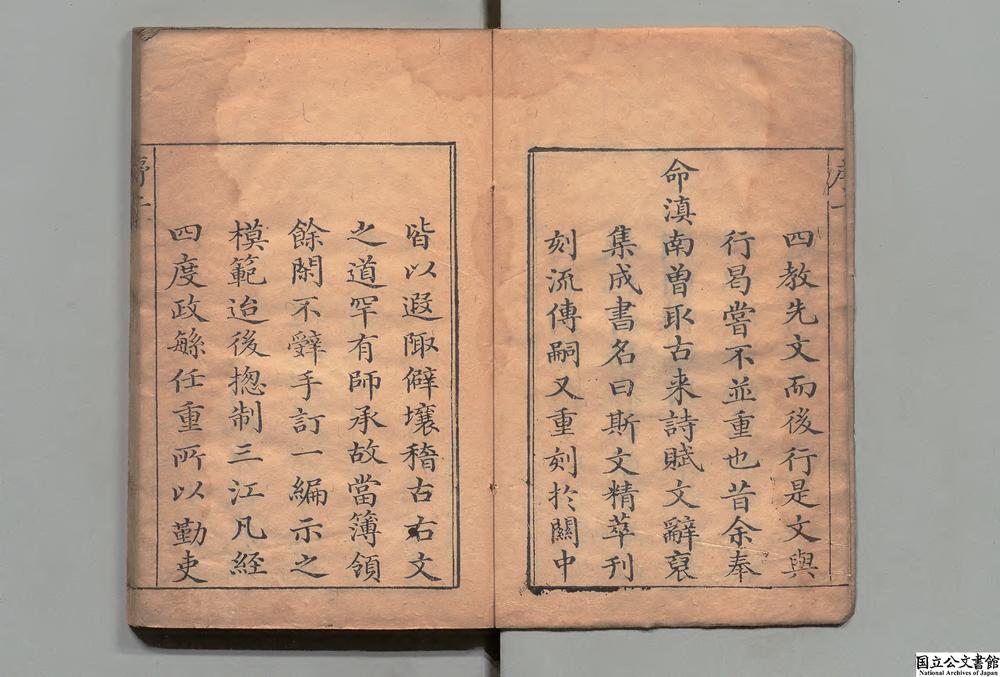 四教先文而後行是文與
行曷嘗不並重也昔余奉
命滇南曾取古来詩賦文辭裒
集成書名曰斯文精萃刋
刻流傳嗣又重刻扵關中
皆以遐陬僻壤稽古右文
之道罕有師承故當簿領
餘閑不辭手訂一編示之
模範迨後揔制三江凡経
四度政繇任重所以勤吏
国立公文書館
National Archives of Japan